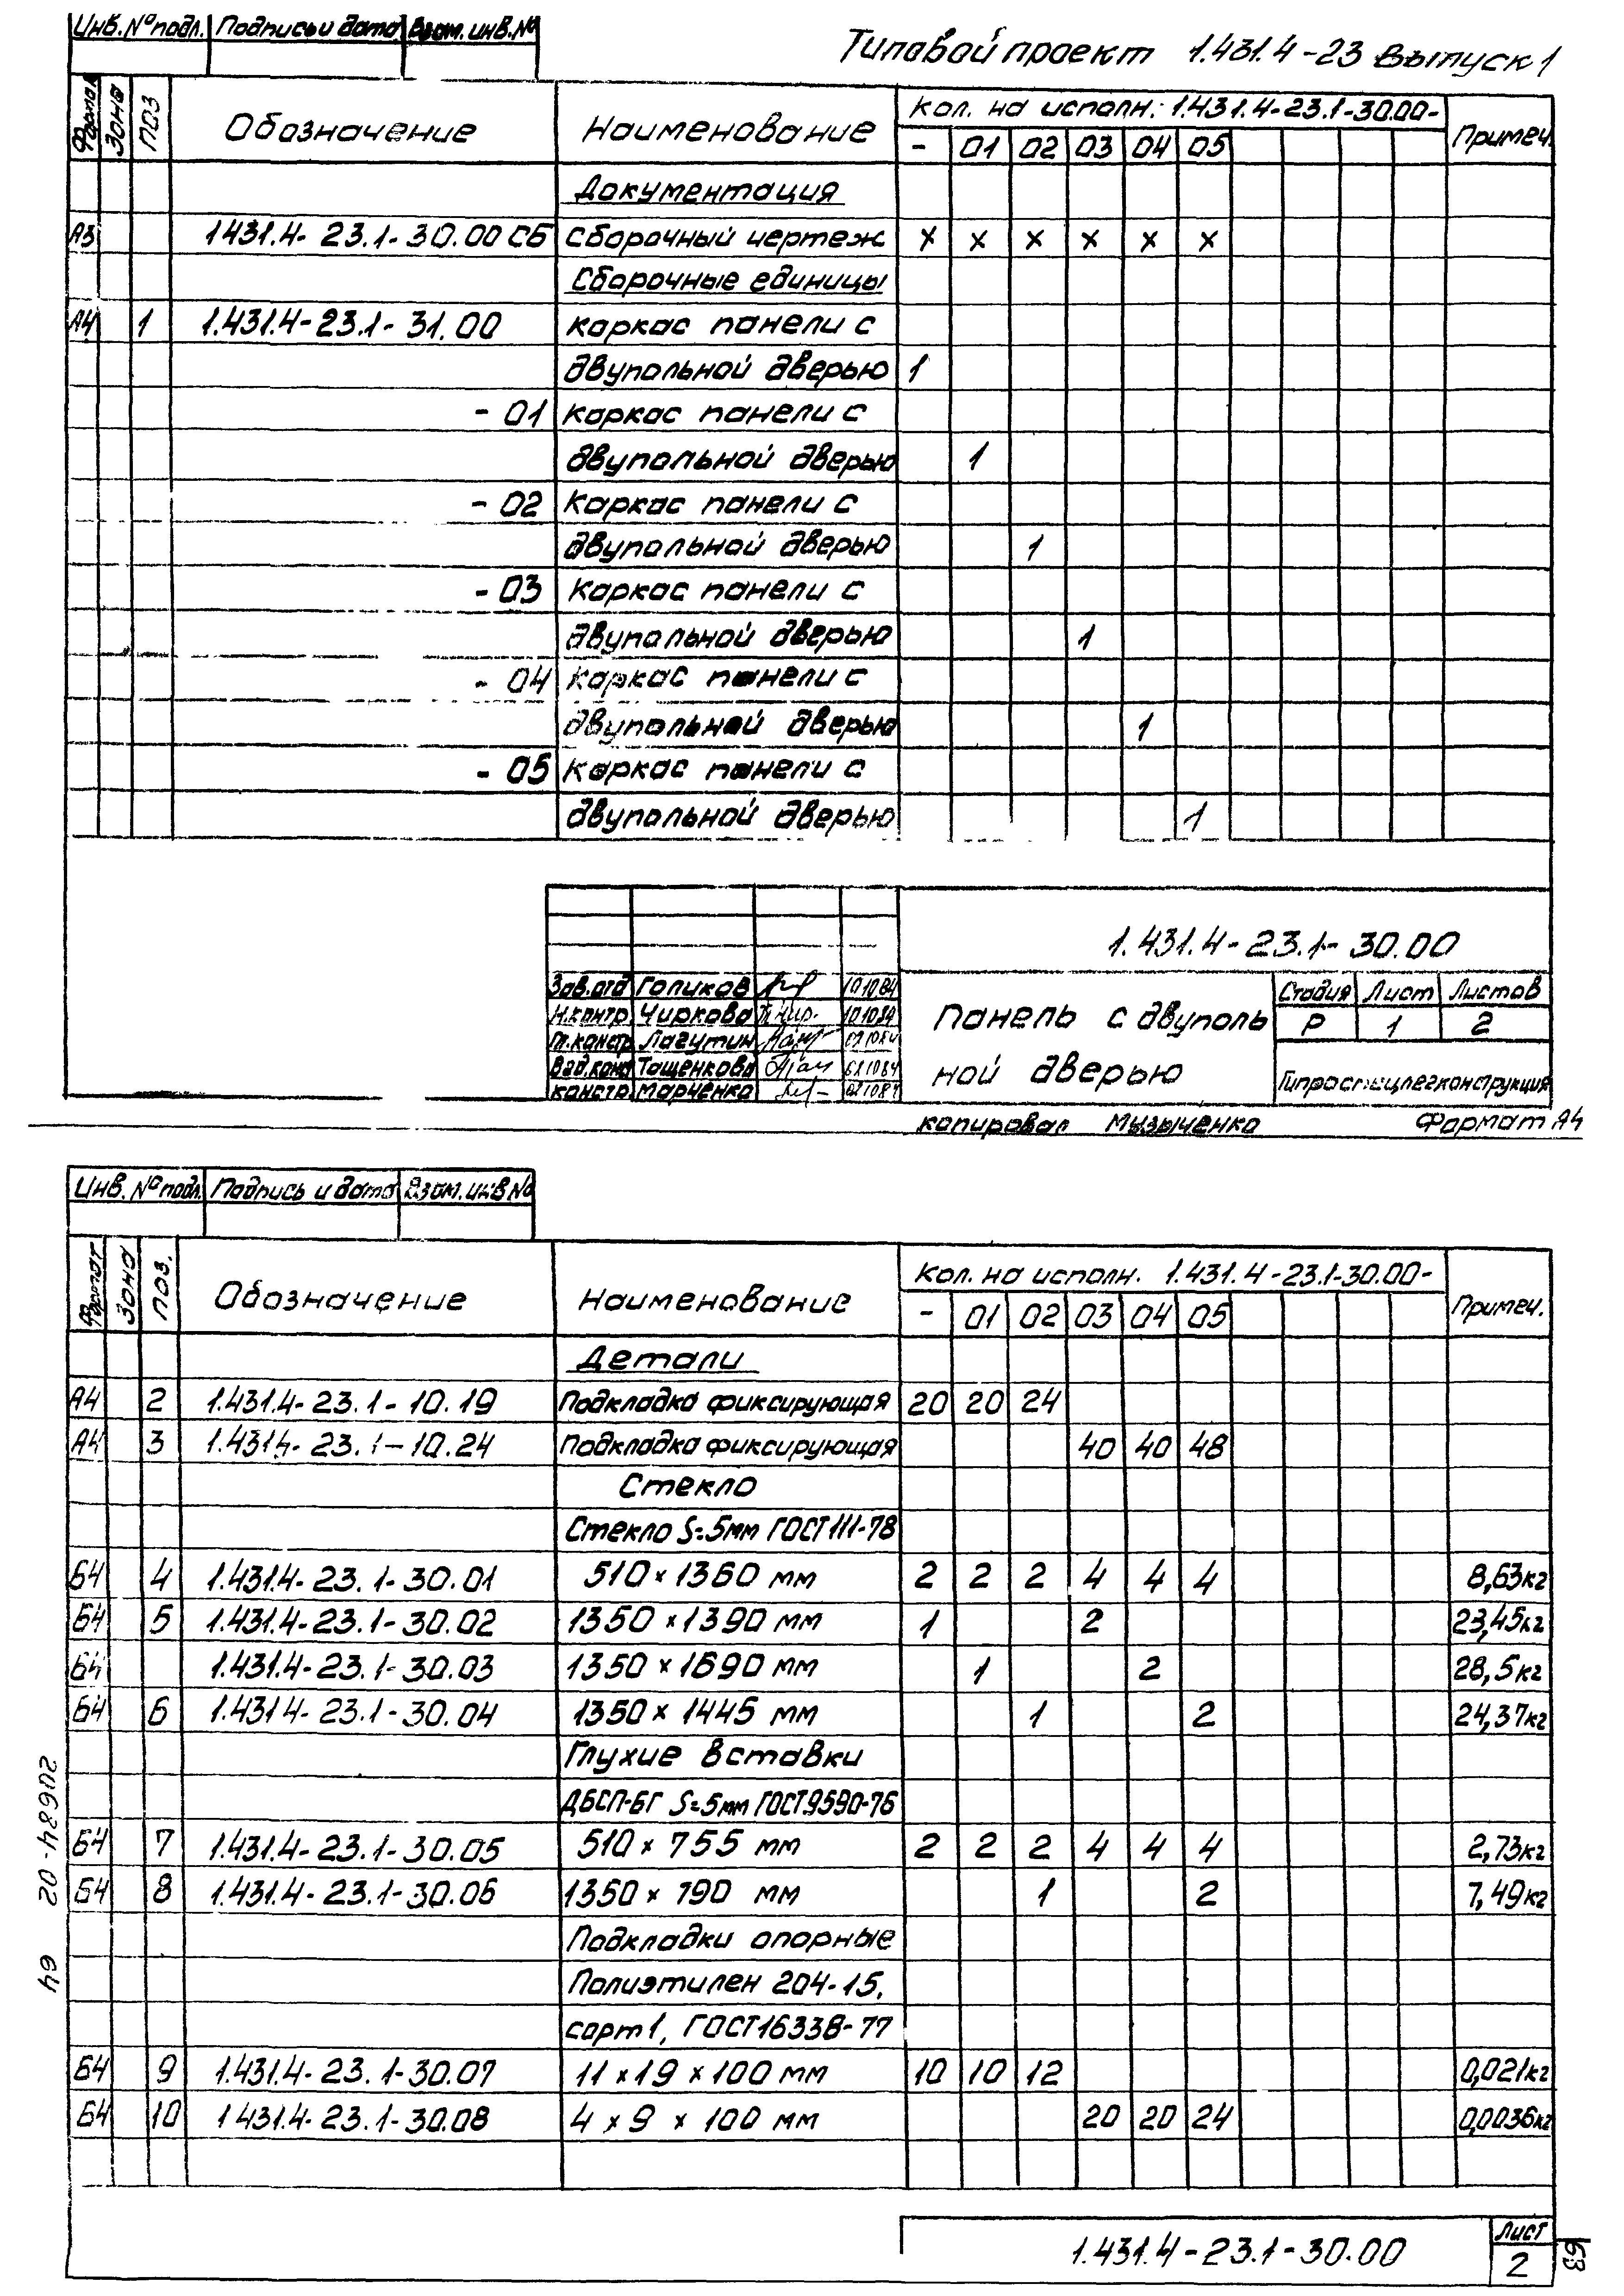 Типовой проект 1.431.4-23 Выпуск 1
Инв. № подл. Подпись и дата Взам. инв. №
Формат Зона Поз Обозначение Наименование Кол. на исполн.: 1.431.4-23.1-30.00- Примеч.
- 01 02 03 04 05
Документация
А3 1431.4-23.1-30.00 СБ Сборочный чертеж х х х х х х
Сборочные единицы
А4 1 1.431.4-23.1-31.00 Каркас панели с
двупольной дверью 1
- 01 Каркас панели с
двупольной дверью 1
- 02 Каркас панели с
двупольной дверью 1
- 03 Каркас панели с
двупольной дверью 1
- 04 Каркас панели с
двупольной дверью 1
- 05 Каркас панели с
двупольной дверью 1
1.431.4-23.1-30.00
Зав.отд Голиков 101084
Н.контр Чиркова 101084
Гл.констр Лагутин
Вед.конс Тащенкова
констр. Марченко
Панель с двуполь
ной дверью
Стадия Лист Листов
Р 1 2
Гипроспецлегконструкция
копировал Мызыченко Формат А4
Инв. № подл. Подпись и дата Взам. инв №
Формат Зона Поз. Обозначение Наименование Кол. на исполн. 1.431.4-23.1-30.00- Примеч.
- 01 02 03 04 05
Детали
А4 2 1.431.4-23.1-10.19 Подкладка фиксирующая 20 20 24
А4 3 1.4314-23.1-10.24 Подкладка фиксирующая 40 40 48
Стекло
Стекло S=5мм ГОСТ 111-78
Б4 4 1.431.4-23.1-30.01 510×1360 мм 2 2 2 4 4 4 8,63кг
Б4 5 1.431.4-23.1-30.02 1350×1390 мм 1 2 23,45кг
Б4 1.431.4-23.1-30.03 1350×1690 мм 1 2 28,5кг
Б4 6 1.4314-23.1-30.04 1350×1445 мм 1 2 24,37кг
Глухие вставки
ДБСП-БГ S=5мм ГОСТ.9590-76
Б4 7 1.431.4-23.1-30.05 510×755 мм 2 2 2 4 4 4 2,73кг
Б4 8 1.431.4-23.1-30.06 1350×790 мм 1 2 7,49кг
Подкладки опорные
Полиэтилен 204-15,
сорт 1, ГОСТ 16338-77
Б4 9 1.431.4-23.1-30.07 11×19×100 мм 10 10 12 0,021кг
Б4 10 1431.4-23.1-30.08 4×9×100 мм 20 20 24 0,0036кг
20684-02 64
1.431.4-23.1-30.00
Лист
2
63